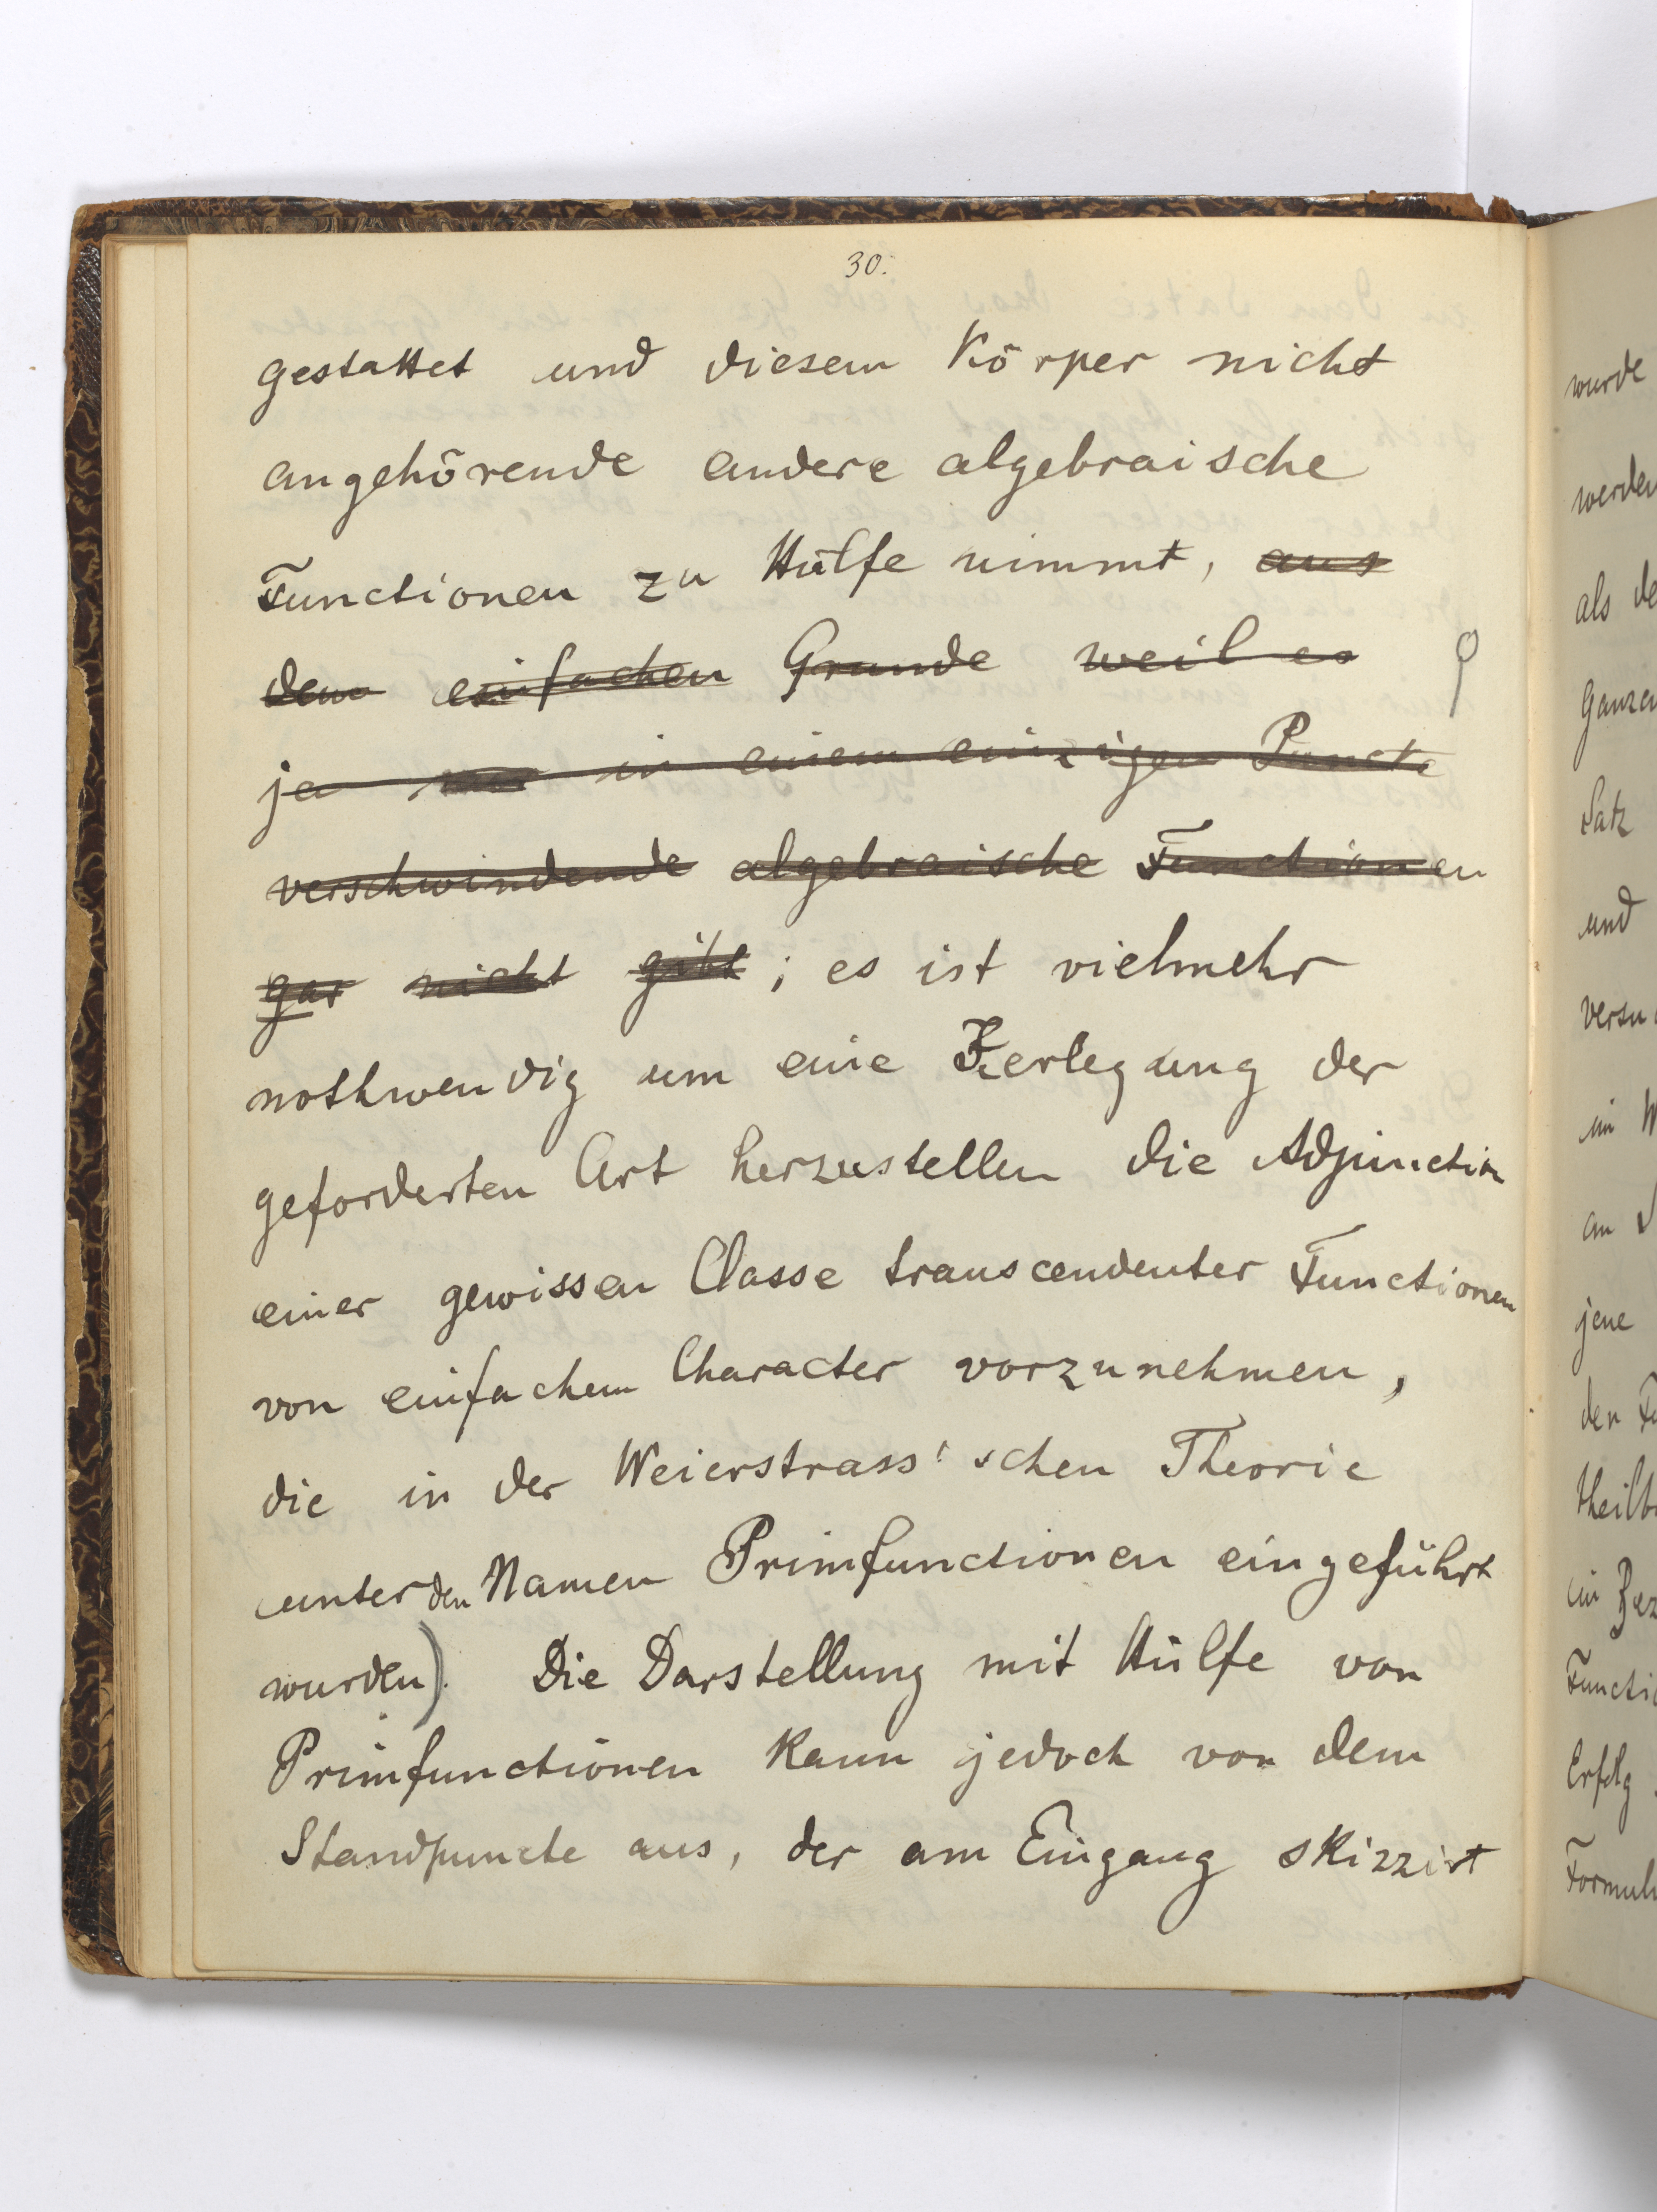 30.
gestattet und diesem Körper nicht
angehörende andere algebraische
Functionen zu Hülfe nimmt, aus
dem einfachen Grunde weil es
ja nur in einem einzigen Puncte
verschwindende algebraische Functionen
gar nicht gibt ; es ist vielmehr
nothwendig um eine Zerlegung der
geforderten Art herzustellen die Adjunction
einer gewissen Classe transcendenter Functionen
von einfachem Character vorzunehmen,
die in der Weierstrass'schen Theorie
unter den Namen Primfunctionen eingeführt
wurden). Die Darstellung mit Hülfe von
Primfunctionen kann jedoch von dem
Standpuncte aus, der am Eingang skizzirt
wurde
werden
als de
Ganzen
Satz
und
versu
im W
an
jene
den Fu
theilb
in Bez
Functio
Erfolg
Formul